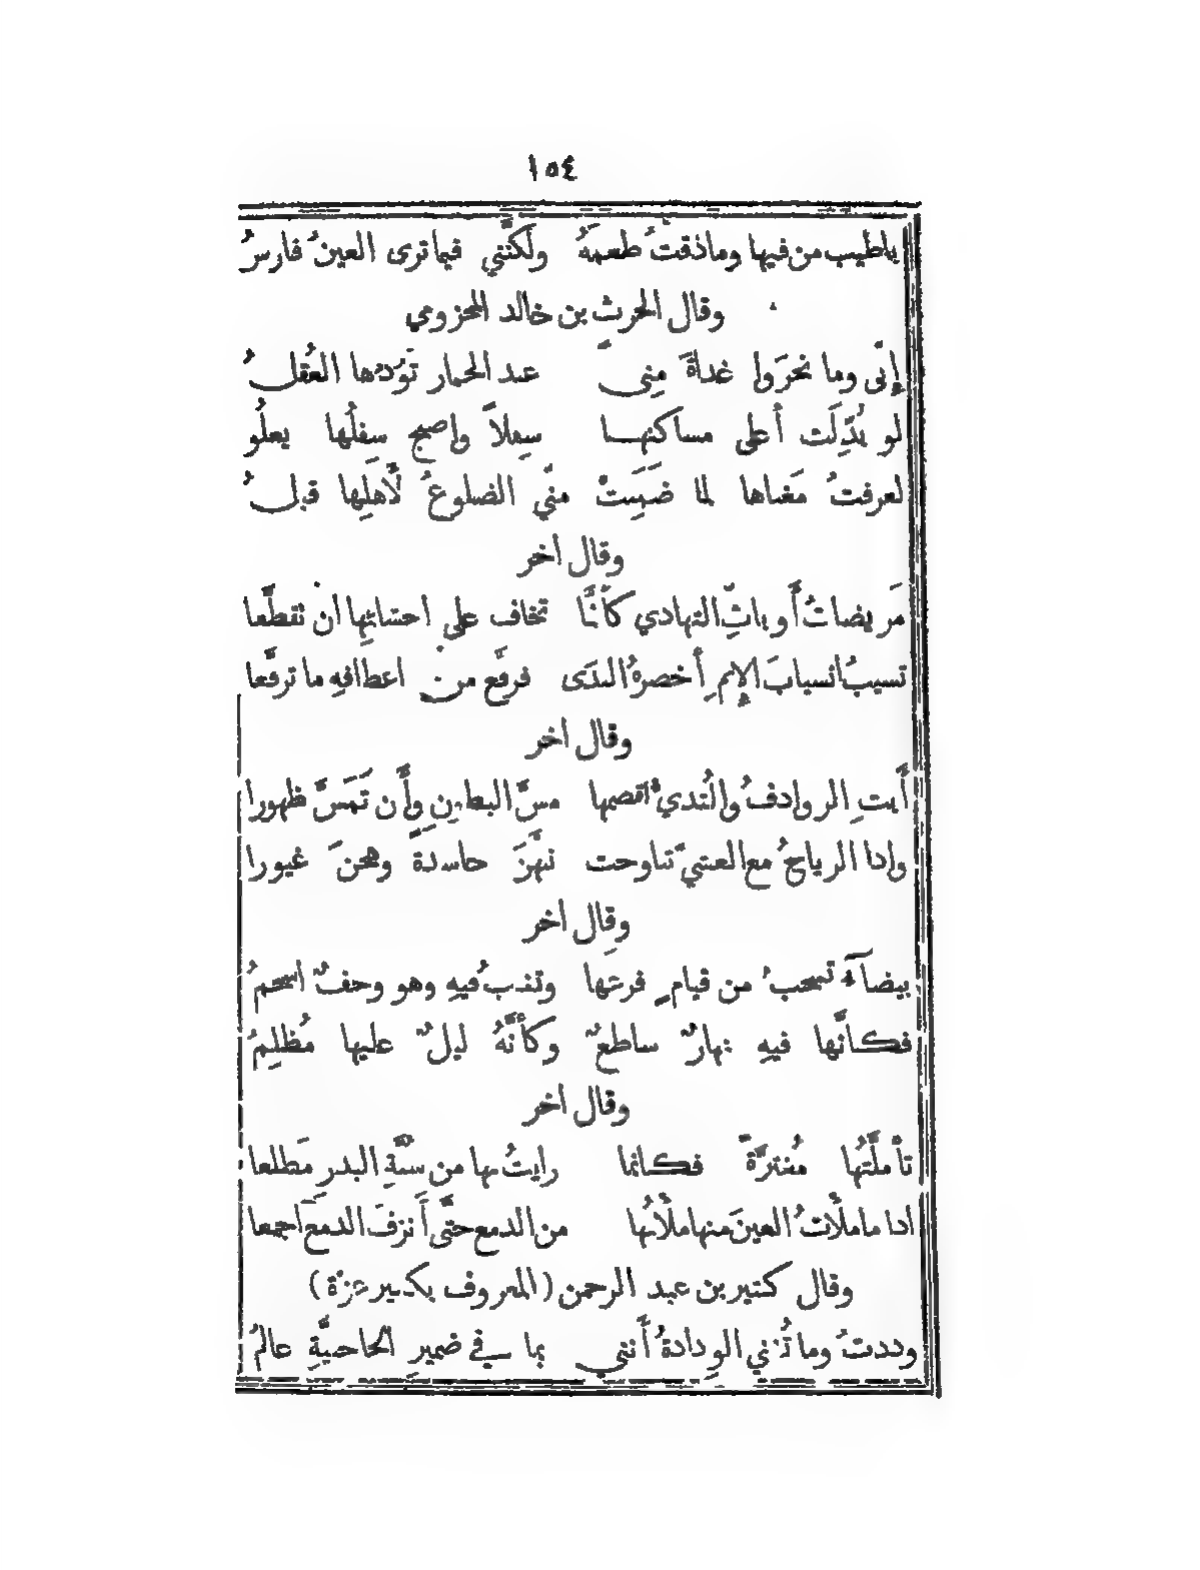 ١٥٤
باطيب من فيها وماذقتُ طعمهُ ولكنَّني فيما ترى العينُ فارسُ
وقال الحرث بن خالد المخزومي
إنّي وما نحرَوا غداةَ مِنىً عند الجمار تَؤدها العُقلُ
لو بُدِّلَت أعلى مساكنها سِفلاً واصبح سِفلُها يعلُو
لعرفتُ مَغناها لما ضَمِنَتْ منّي الضلوعُ لأَهلِها قبلُ
وقال اخر
مَريضاتُ أَوباتِ التهادي كأَنَّما تخاف على احشائها ان تقطَّعا
تسيبُ انسيابَ الإيمِ أخصرهُ الندَى فرفَّع من اعطافهِ ما ترفَّعا
وقال اخر
أَبتِ الروادفُ والثدي لقمصها مسَّ البطونِ وأَن تَمَسَّ ظهورا
واذا الرياحُ مع العشيّ تناوحت نبَّهنَ حاسدةً وهجنَ غيورا
وقال اخر
بيضآءُ تسحبُ من قيامٍ فرعها وتغيبُ فيهِ وهو وحفٌ اسحمُ
فكأنَّها فيهِ نهارٌ ساطعٌ وكأنَّهُ ليلٌ عليها مُظلِمُ
وقال اخر
تأملَّتُها مُغترَّةً فكانما رايتُ بها من سُنَّةِ البدرِ مَطلعا
اذا ماملأتُ العينَ منها ملأتُها من الدمع حتَّى أَنزفَ الدمعَ اجمعا
وقال كثير بن عبد الرحمن (المعروف بكثير عزة)
وددتُ وما تُغني الودادةُ أَنني بما في ضميرِ الحاجبيَّةِ عالمُ